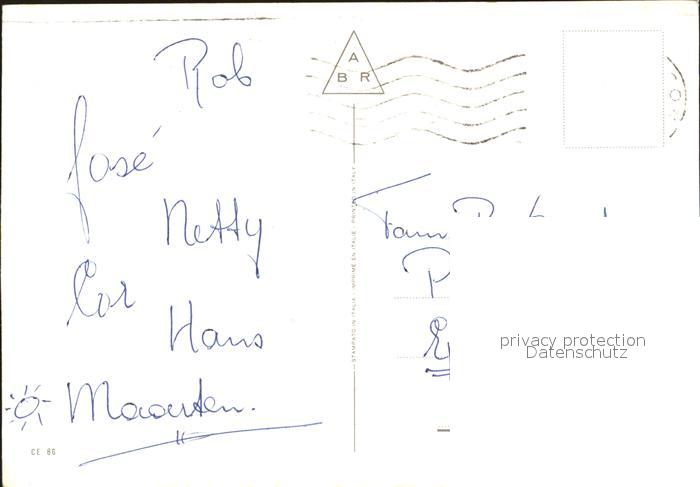 Rob
José
Netty
Cor
Hans
Maarten.
CE 86
A
B R
STAMPATO IN ITALIA - IMPRIMÉ EN ITALIE - PRINTED IN ITALY
Fam
privacy protection
Datenschutz